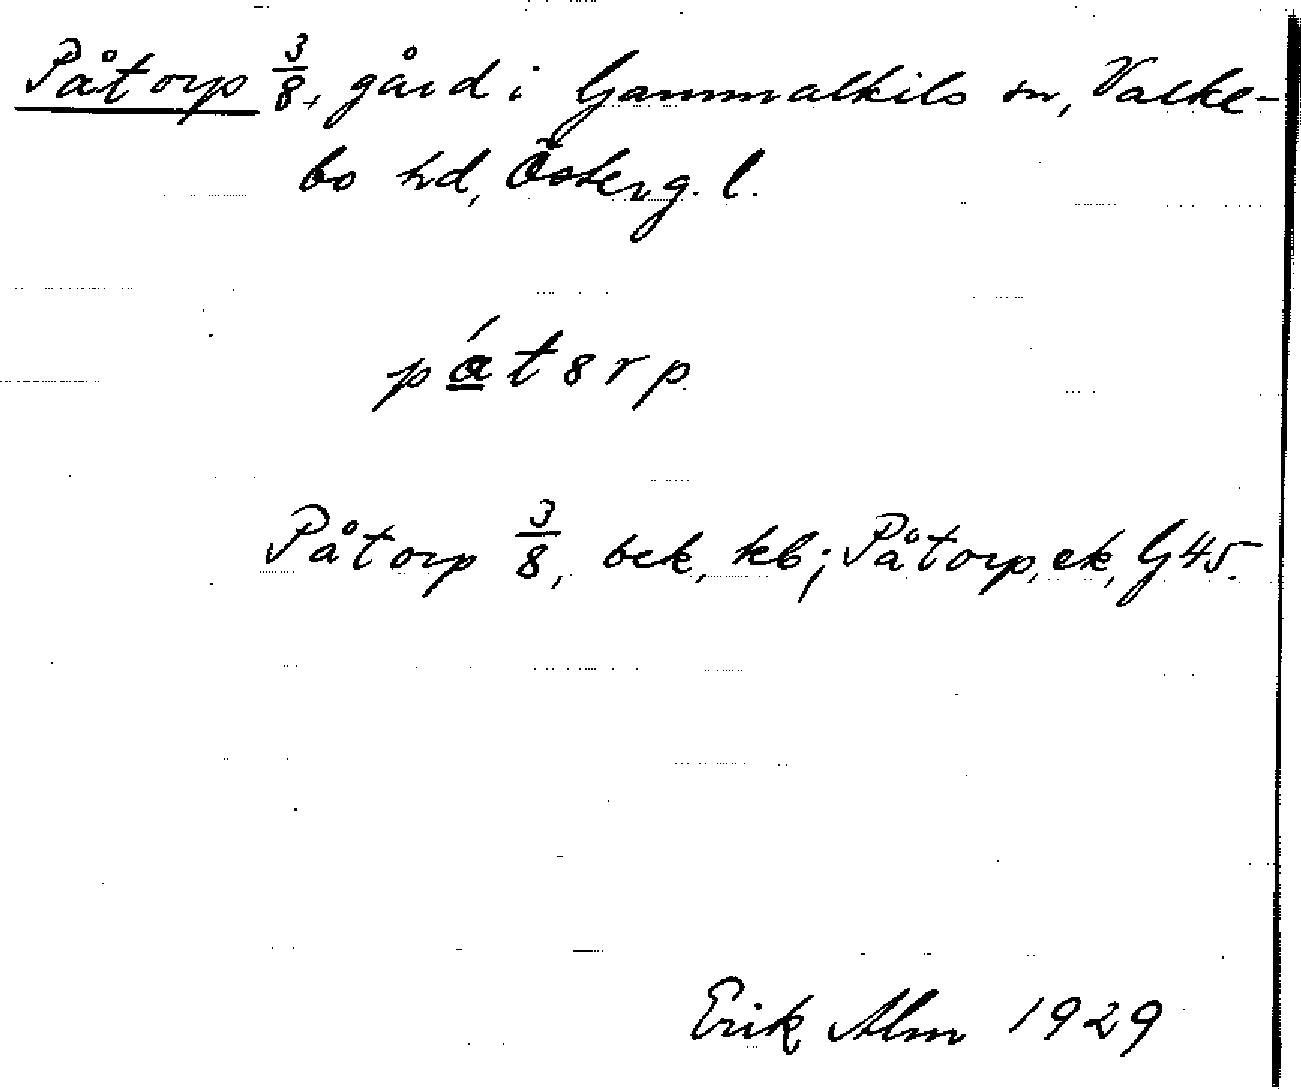 Påtorp 3/8, gård i Gammalkils sn, Valke-
bo hd, Österg. l.
pát8rp
Påtorp 3/8, bek, kb; Påtorp, ek, G45.
Erik Alm 1929